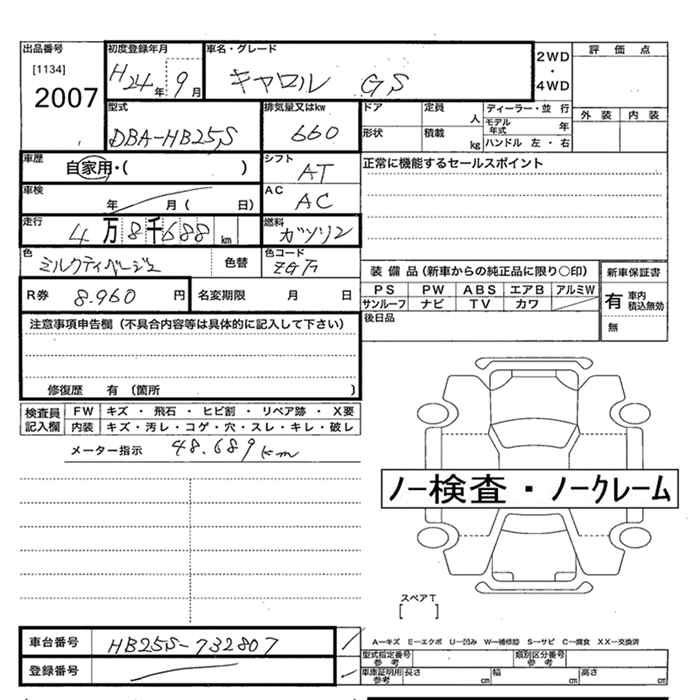 出品番号 初度登録年月 車名・グレード 2WD・4WD 評価点
[1134] 2007 H24年 9月 キャロル GS
型式 排気量又はkw ドア 定員 人 ディーラー・並行 外装 内装
DBA-HB25S 660 形状 積載 kg モデル年式 年 ハンドル 左・右
車歴 自家用・( ) シフト AT 正常に機能するセールスポイント
車検 年 月( 日) AC AC
走行 4万8千688km 燃料 ガソリン
色 ミルクティベージュ 色替 色コード
装備品(新車からの純正品に限り○印) 新車保証書
R券 8.960円 名変期限 月 日 PS PW ABS エアB アルミW 有 車内積込無効
サンルーフ ナビ TV カワ
注意事項申告欄(不具合内容等は具体的に記入して下さい) 後日品 無
修復歴 有(箇所 )
検査員記入欄 FW キズ・飛石・ヒビ割・リペア跡・X要
内装 キズ・汚レ・コゲ・穴・スレ・キレ・破レ
メーター指示 48.689km
ノー検査・ノークレーム
スペアT
[ ]
車台番号 HB25S-732807 A-キズ E-エクボ U-凹み W-補修跡 S-サビ C-腐食 XX-交換済
型式指定番号 参考 類別区分番号 参考
登録番号 車庫証明用 参考 長さ cm 幅 cm 高さ cm